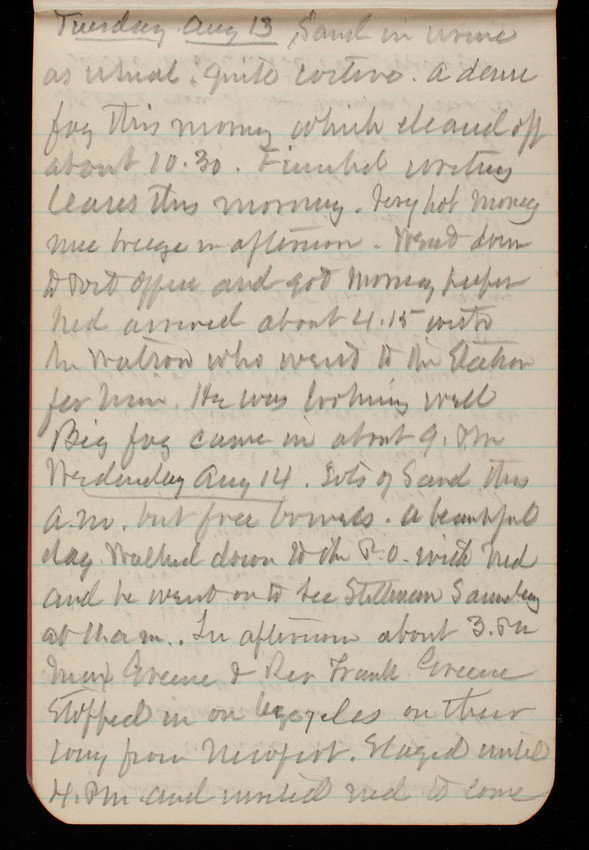 Tuesday Aug 13, Sand in urine
as usual. Quite costive. A dense
fog this morng which cleared off
about 10.30. Finished writing
leaves this morning. Very hot morng
nice breeze in afternoon. Went down
to Post Office and got morng paper
Ned arrived about 4.15 with
Mr Watson who went to the Station
for him. He was looking well
Big fog came in about 9. PM
Wednesday Aug 14. Lots of Sand this
a.m. but free bowels. A beautiful
day. Walked down to the P.O. with Ned
and he went on to see Stillman Saunders
at 11. a m.. In afternoon about 3. PM
Max Greene & Rev Frank Greene
Stopped in on bicycles on their
way from Newport. Stayed until
4. PM and invited Ned to come